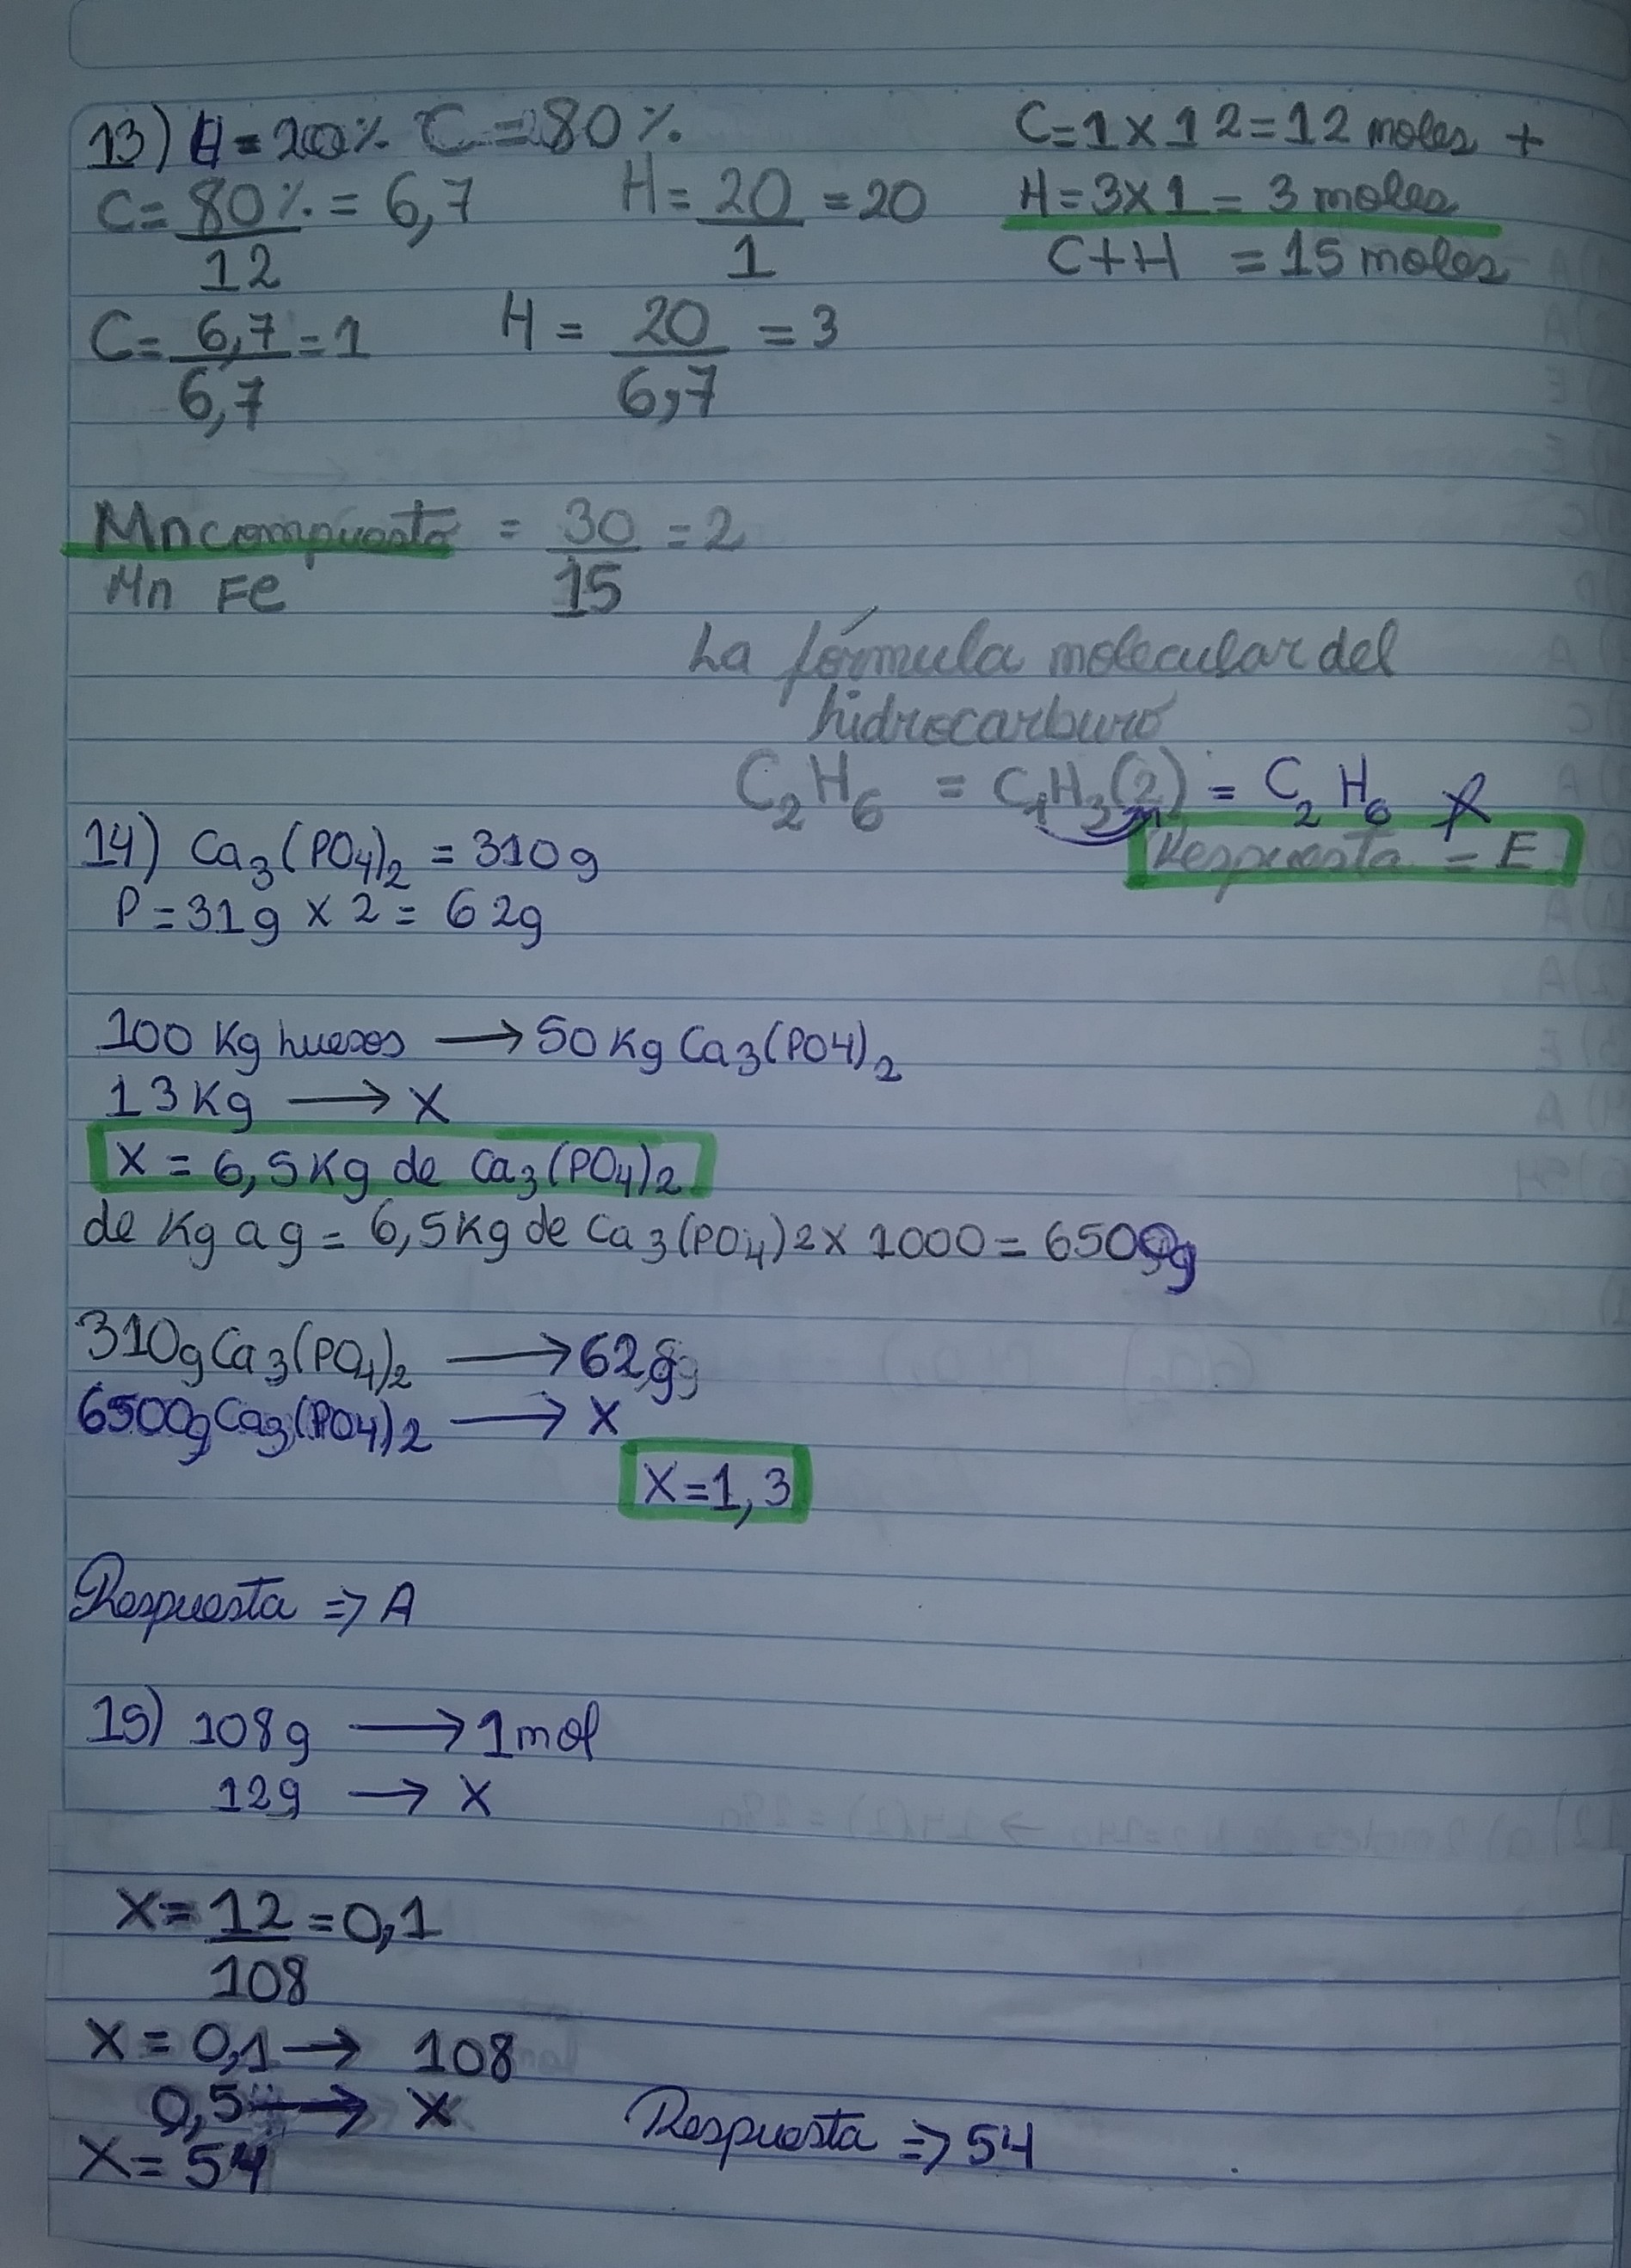 13) H = 20% C = 80%
C = 80% / 12 = 6,7 H = 20 / 1 = 20
C = 6,7 / 6,7 = 1 H = 20 / 6,7 = 3
C = 1 x 12 = 12 moles +
H = 3x1 = 3 moles
C+H = 15 moles
Mn compuesto / Mn Fe = 30 / 15 = 2
La fórmula molecular del
hidrocarburo
C2H6 = C1H3(2) = C2H6
Respuesta = E
14) Ca3(PO4)2 = 310g
P = 31g x 2 = 62g
100 Kg huesos → 50 Kg Ca3(PO4)2
13 Kg → X
X = 6,5 Kg de Ca3(PO4)2
de Kg a g = 6,5 Kg de Ca3(PO4)2 x 1000 = 6500g
310g Ca3(PO4)2 → 62g
6500g Ca3(PO4)2 → X
X = 1,3
Respuesta => A
15) 108g → 1 mol
12g → X
X = 12 / 108 = 0,1
X = 0,1 → 108
0,5 → X
X = 54
Respuesta => 54